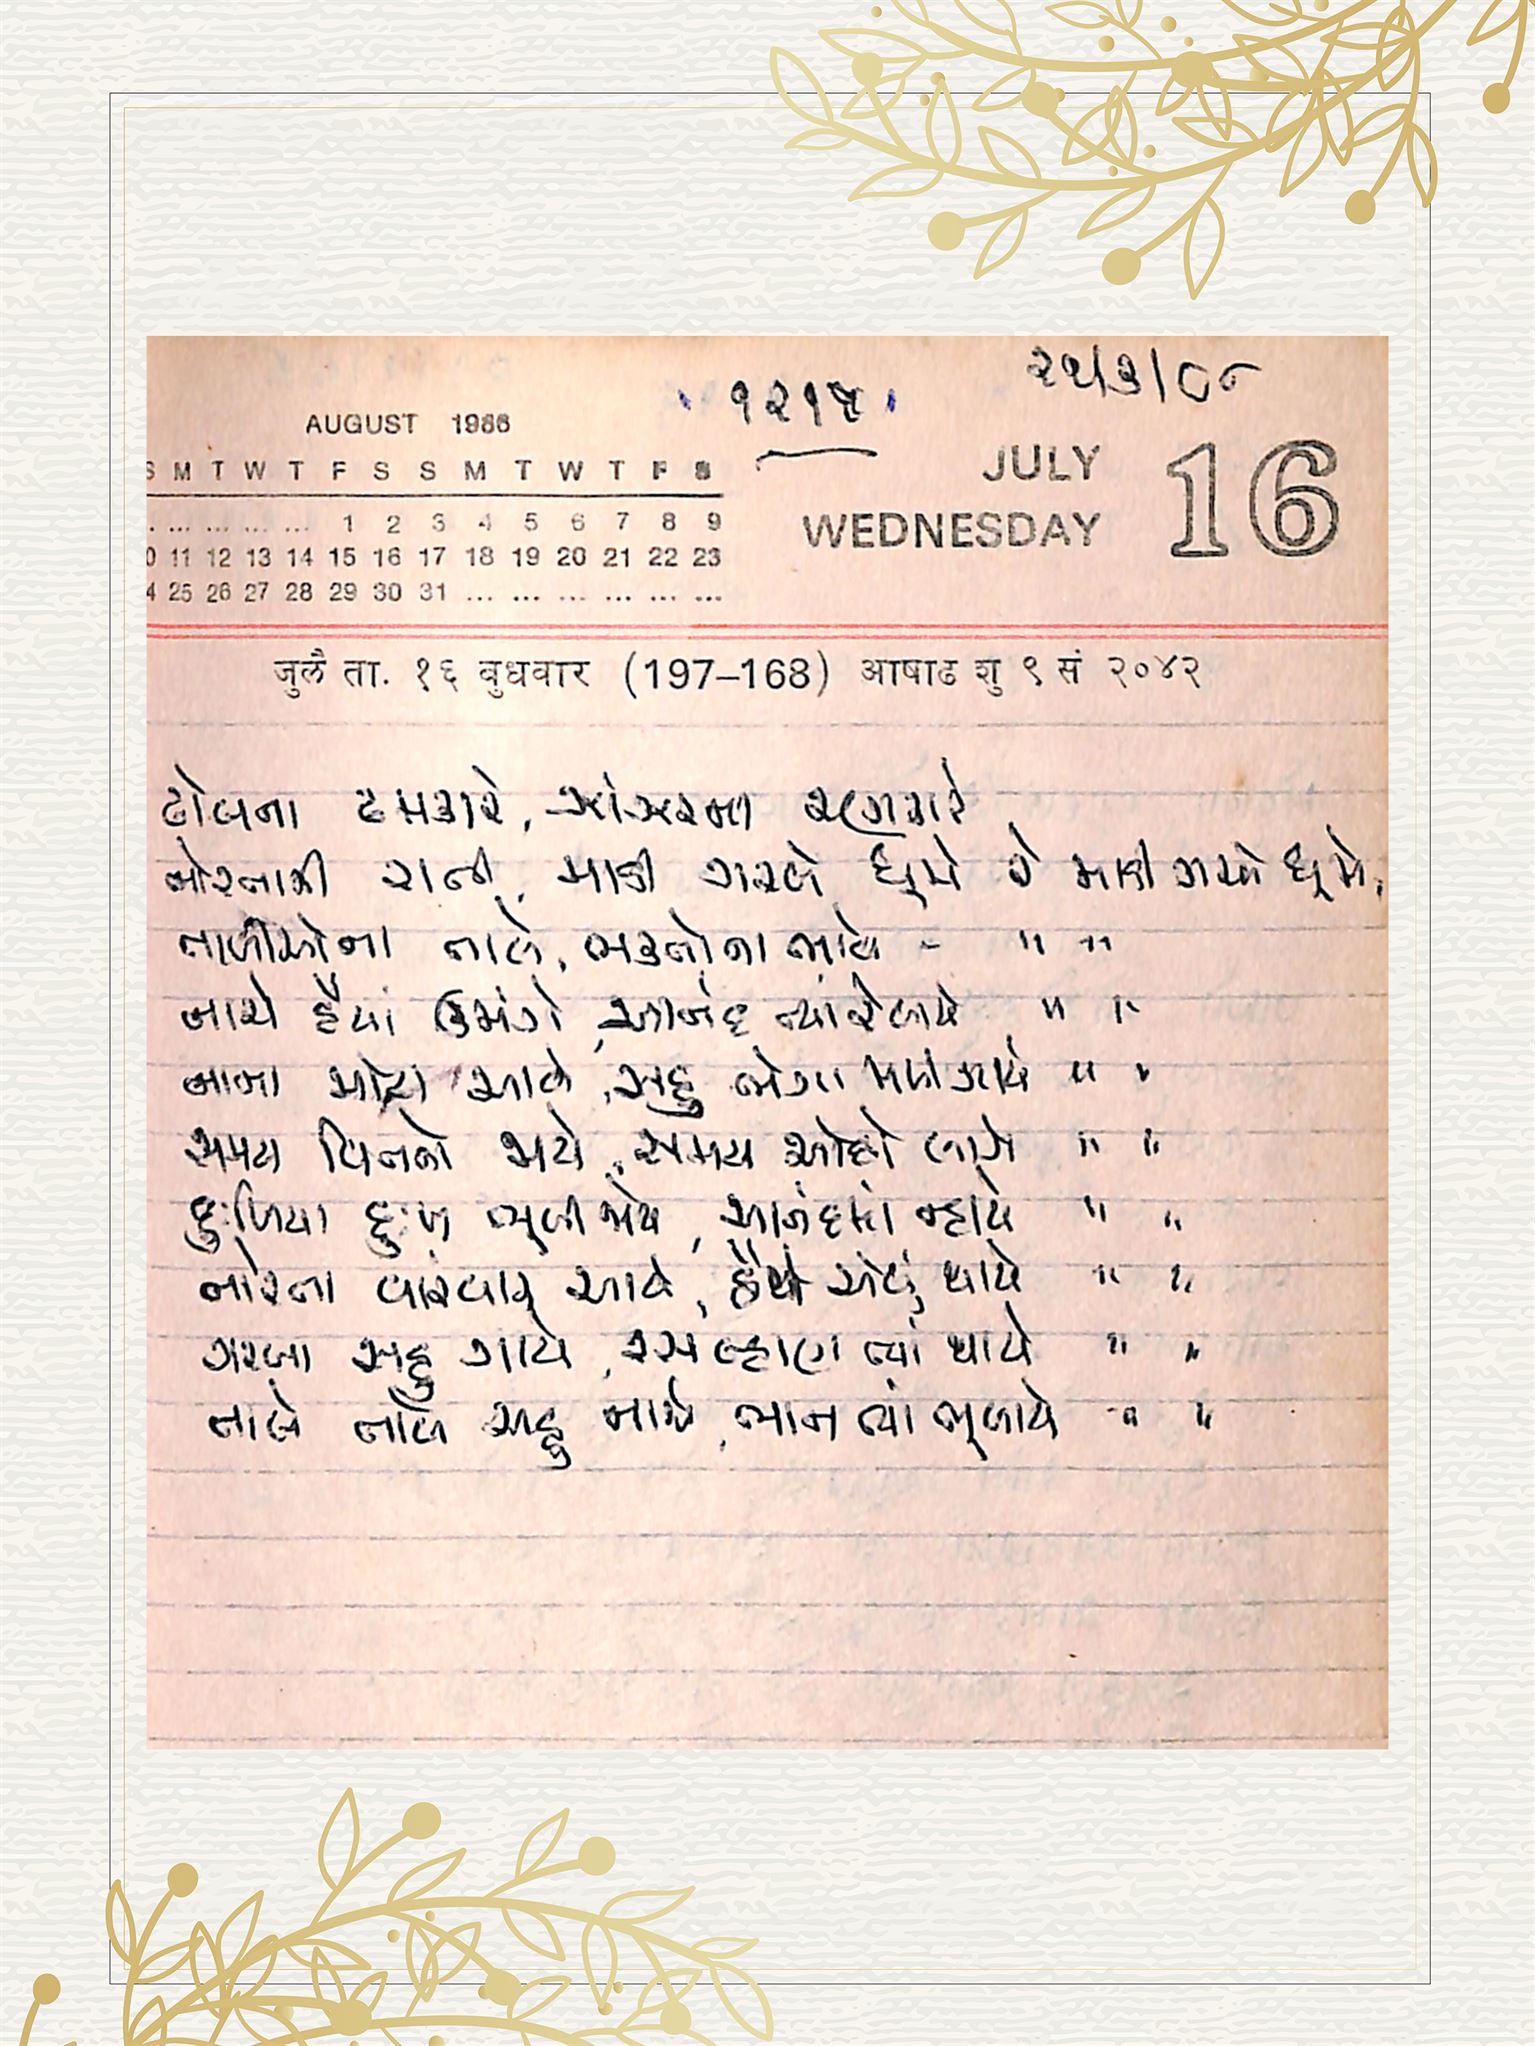 ૨૫/૩/૮૮
૧૨૧૫
AUGUST 1986
S M T W T F S S M T W T F S
. ... ... ... ... 1 2 3 4 5 6 7 8 9
0 11 12 13 14 15 16 17 18 19 20 21 22 23
4 25 26 27 28 29 30 31 ... ... ... ... ... ...
JULY 16
WEDNESDAY
जुलै ता. १६ बुधवार (197–168) आषाढ शु ९ सं २०४२
ઢોલના ઢમકારે, ઝાંઝરના રણકારે
નોરતાની રાતી, માડી ગરબે ઘૂમે રે માડી ગરબે ઘૂમે,
તાળીઓના તાલે, ભક્તોના ભાવે - " "
નાચે હૈયાં ઉમંગે, આનંદ ત્યાં રેલાયે " "
નાના મોટા આવે, સહુ ભેગા મળી ગાયે " "
સમય વિનતો જાયે, સમય ઓછો લાગે " "
દુઃખિયા દુઃખ ભૂલી જાયે, આનંદમાં ન્હાયે " "
નોરતા વારંવાર આવે, હૈયે એવું થાયે " "
ગરબા સહુ ગાયે, રસ લ્હાણ ત્યાં થાયે " "
તાલે તાલે સહુ નાચે, ભાન ત્યાં ભૂલાયે " "